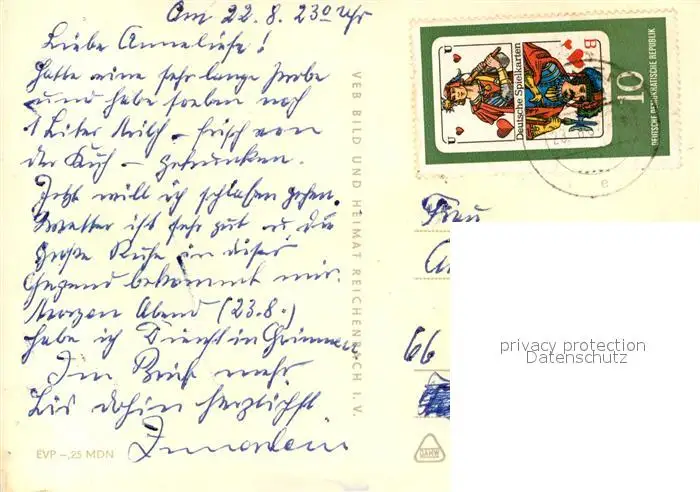 Am 22.8. 23⁰ Uhr
Liebe Anneliese!
Hatte eine sehr lange Probe
und habe soeben noch
1 Liter Milch – frisch von
der Kuh – getrunken.
Jetzt will ich schlafen gehen.
Wetter ist sehr gut u. die
große Ruhe in dieser
Gegend bekommt mir.
Morgen Abend (23.8.)
habe ich Dienst in Grimmen
Im Brief mehr.
Bis dahin herzlichst
EVP –,25 MDN
VEB BILD UND HEIMAT REICHENBACH I. V.
U
U
Deutsche Spielkarten
B
10
DEUTSCHE DEMOKRATISCHE REPUBLIK
e
Frau
66
privacy protection
Datenschutz